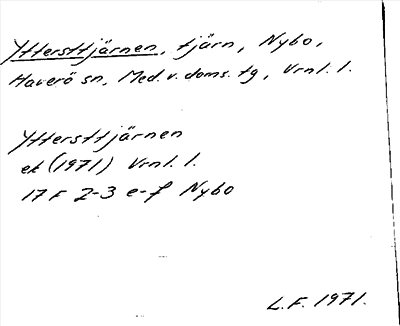 Yttersttjärnen, tjärn, Nybo,
Haverö sn, Med. v. doms. tg, Vrnl. l.
Yttersttjärnen
ek (1971) Vrnl. l.
17 F 2-3 e-f Nybo
L.F. 1971.